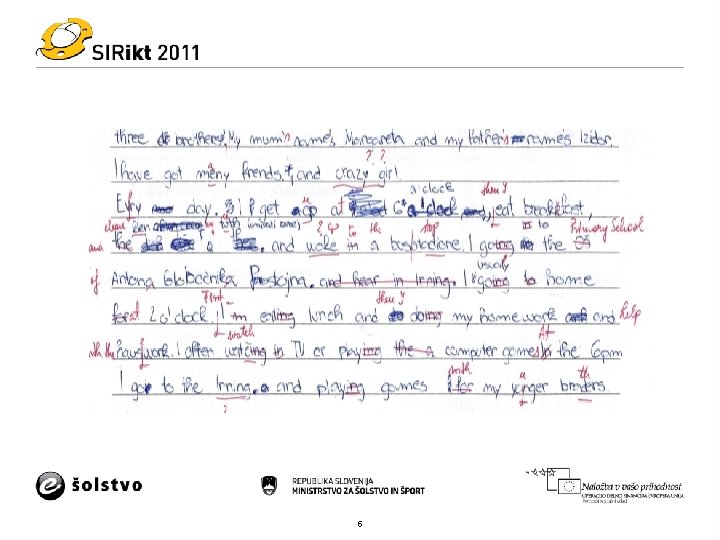 SIRikt 2011
three brothers. My mum's name's Margareta and my father's name's Izidor.
? ?
I have got many friends, and crazy girl
a'clock then I
Evry day. I get up at 6 a'clock and, eat breakfast,
clean with I go to the stop to Primary School
and the a and wake in a busstadione. I going to the OŠ
usualy
of Antona Globočnika Postojna. and hear in Irning. I going to home
First then I
forst 2 o'clock I'm eating lunch and doing my homework and and help
watch At
with the housework. I often watcing in TV or playing the a computer games. In the 6pm
with a th
I go to the Irning. and and playing games for my yonger broders
?
šolstvo
REPUBLIKA SLOVENIJA
MINISTRSTVO ZA ŠOLSTVO IN ŠPORT
Naložba v vašo prihodnost
OPERACIJO DELNO FINANCIRA EVROPSKA UNIJA
Evropski socialni sklad
6